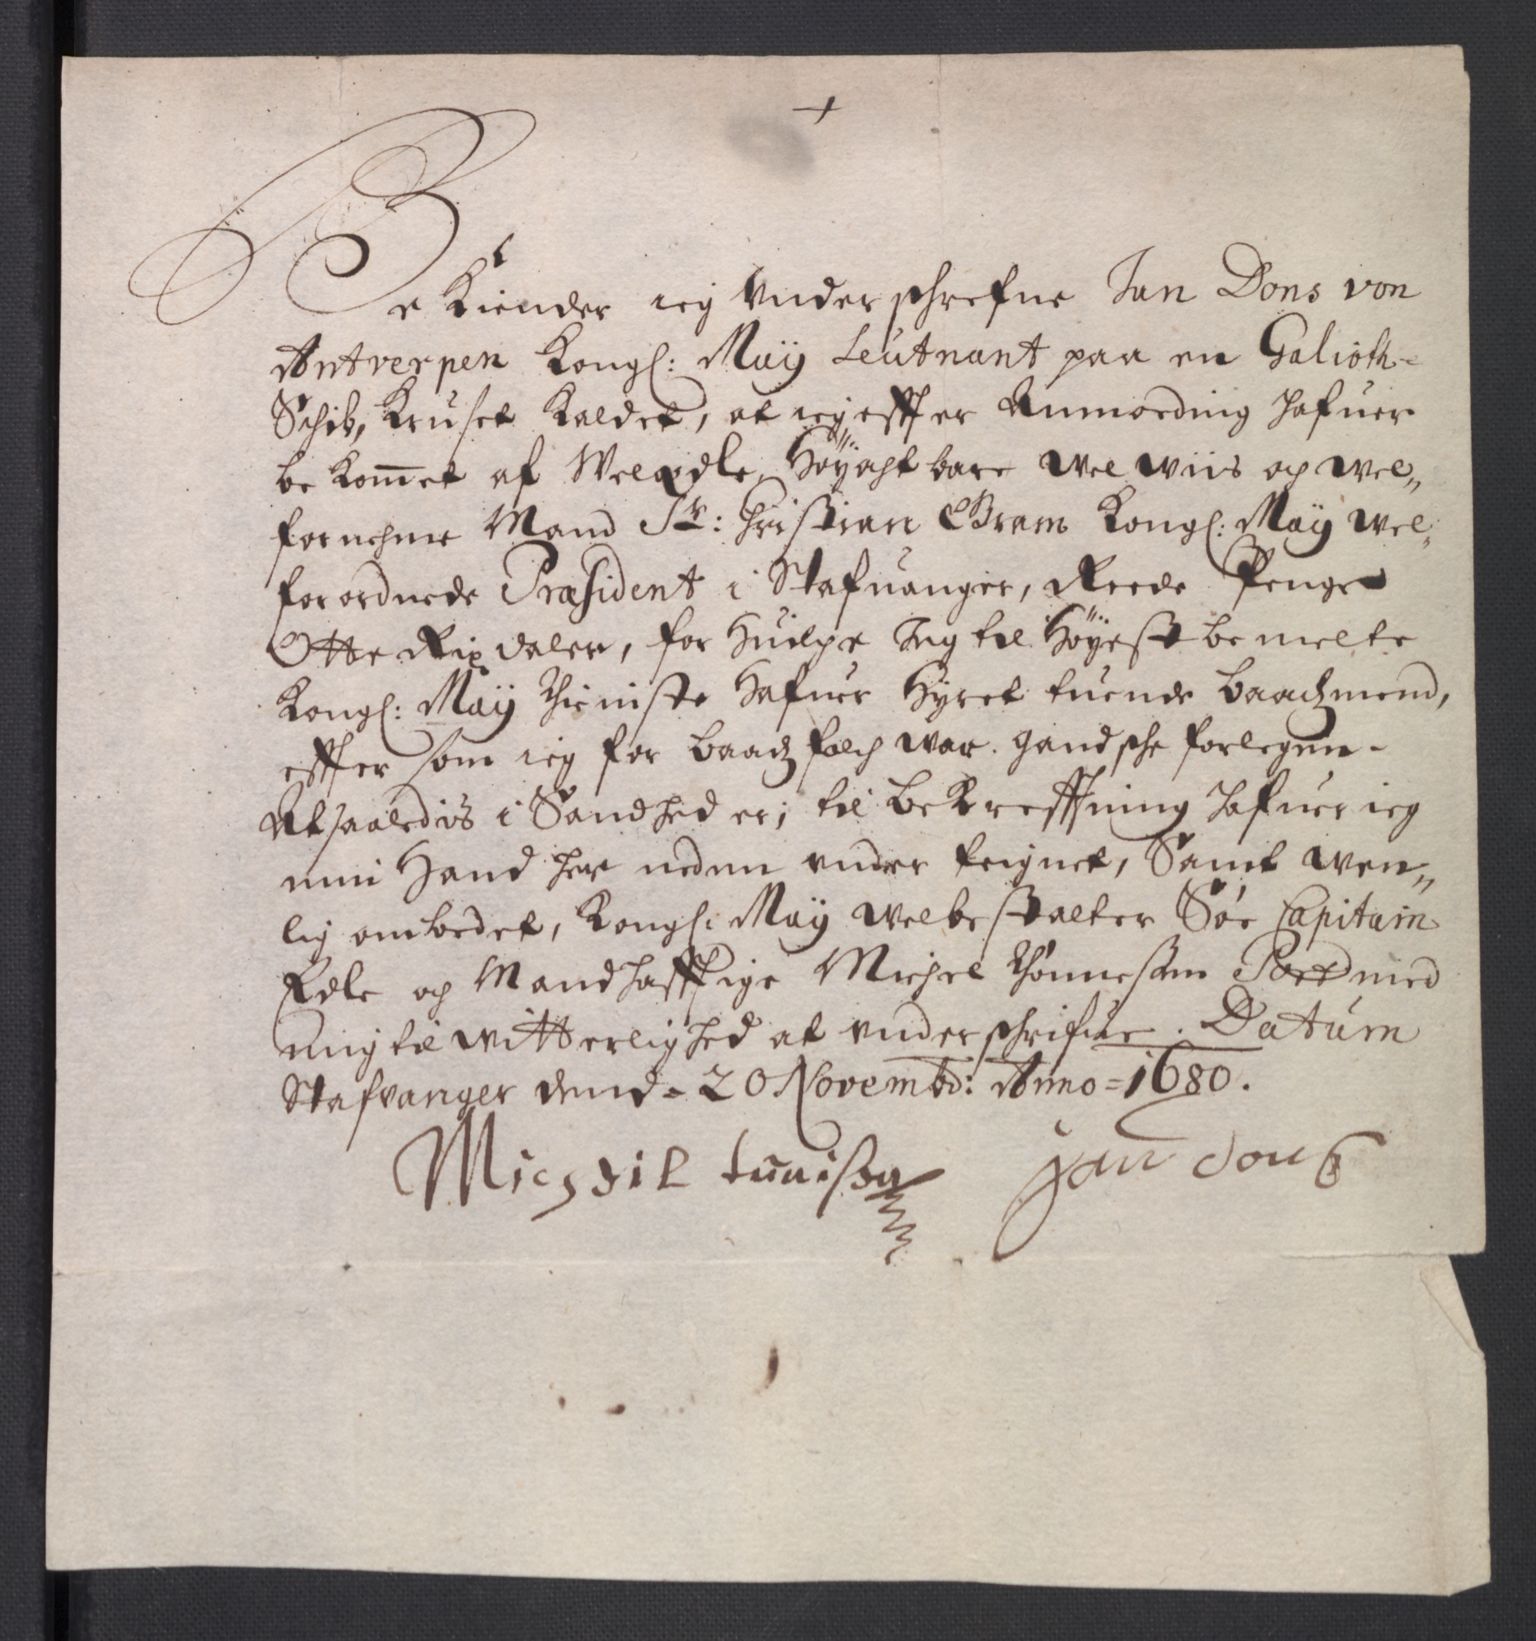 +
Bekiender ieg Underschrefne Jan Dons von
Antverpen Kongl: Maÿ Leutnant paa en Galioth-
Schib, Kruset Kaldet, at ieg effter Anmoeding hafuer
bekommet af Weledle, Høÿacht bare Wel Wiis og Wel„
fornehme Mand Sr: Christian Bram Kongl: Maÿ Wel„
forordnede Præsident i Stafuanger, Reede Penge
Otte Rixdaler, for huilche Jeg til Høÿest bemelte
Kongl: Maÿ Thieniste Hafuer Hÿret tuende Baadzmend,
effter som ieg for Baadzfolch war gandsche forlegen-
At saaledis i Sandhed er; til Bekrefftning hafuer ieg
min Hand her neden under teignet, Samt wen„
lig ombedet, Kongl: Maÿ Welbestalter Søe Capitain
Edle og Mandhafftige Michel Thönneßen med
mig til witterlighed at underschrifue. Datum
Stafvanger dend- 20 Novembr: Anno = 1680.
Jan dons